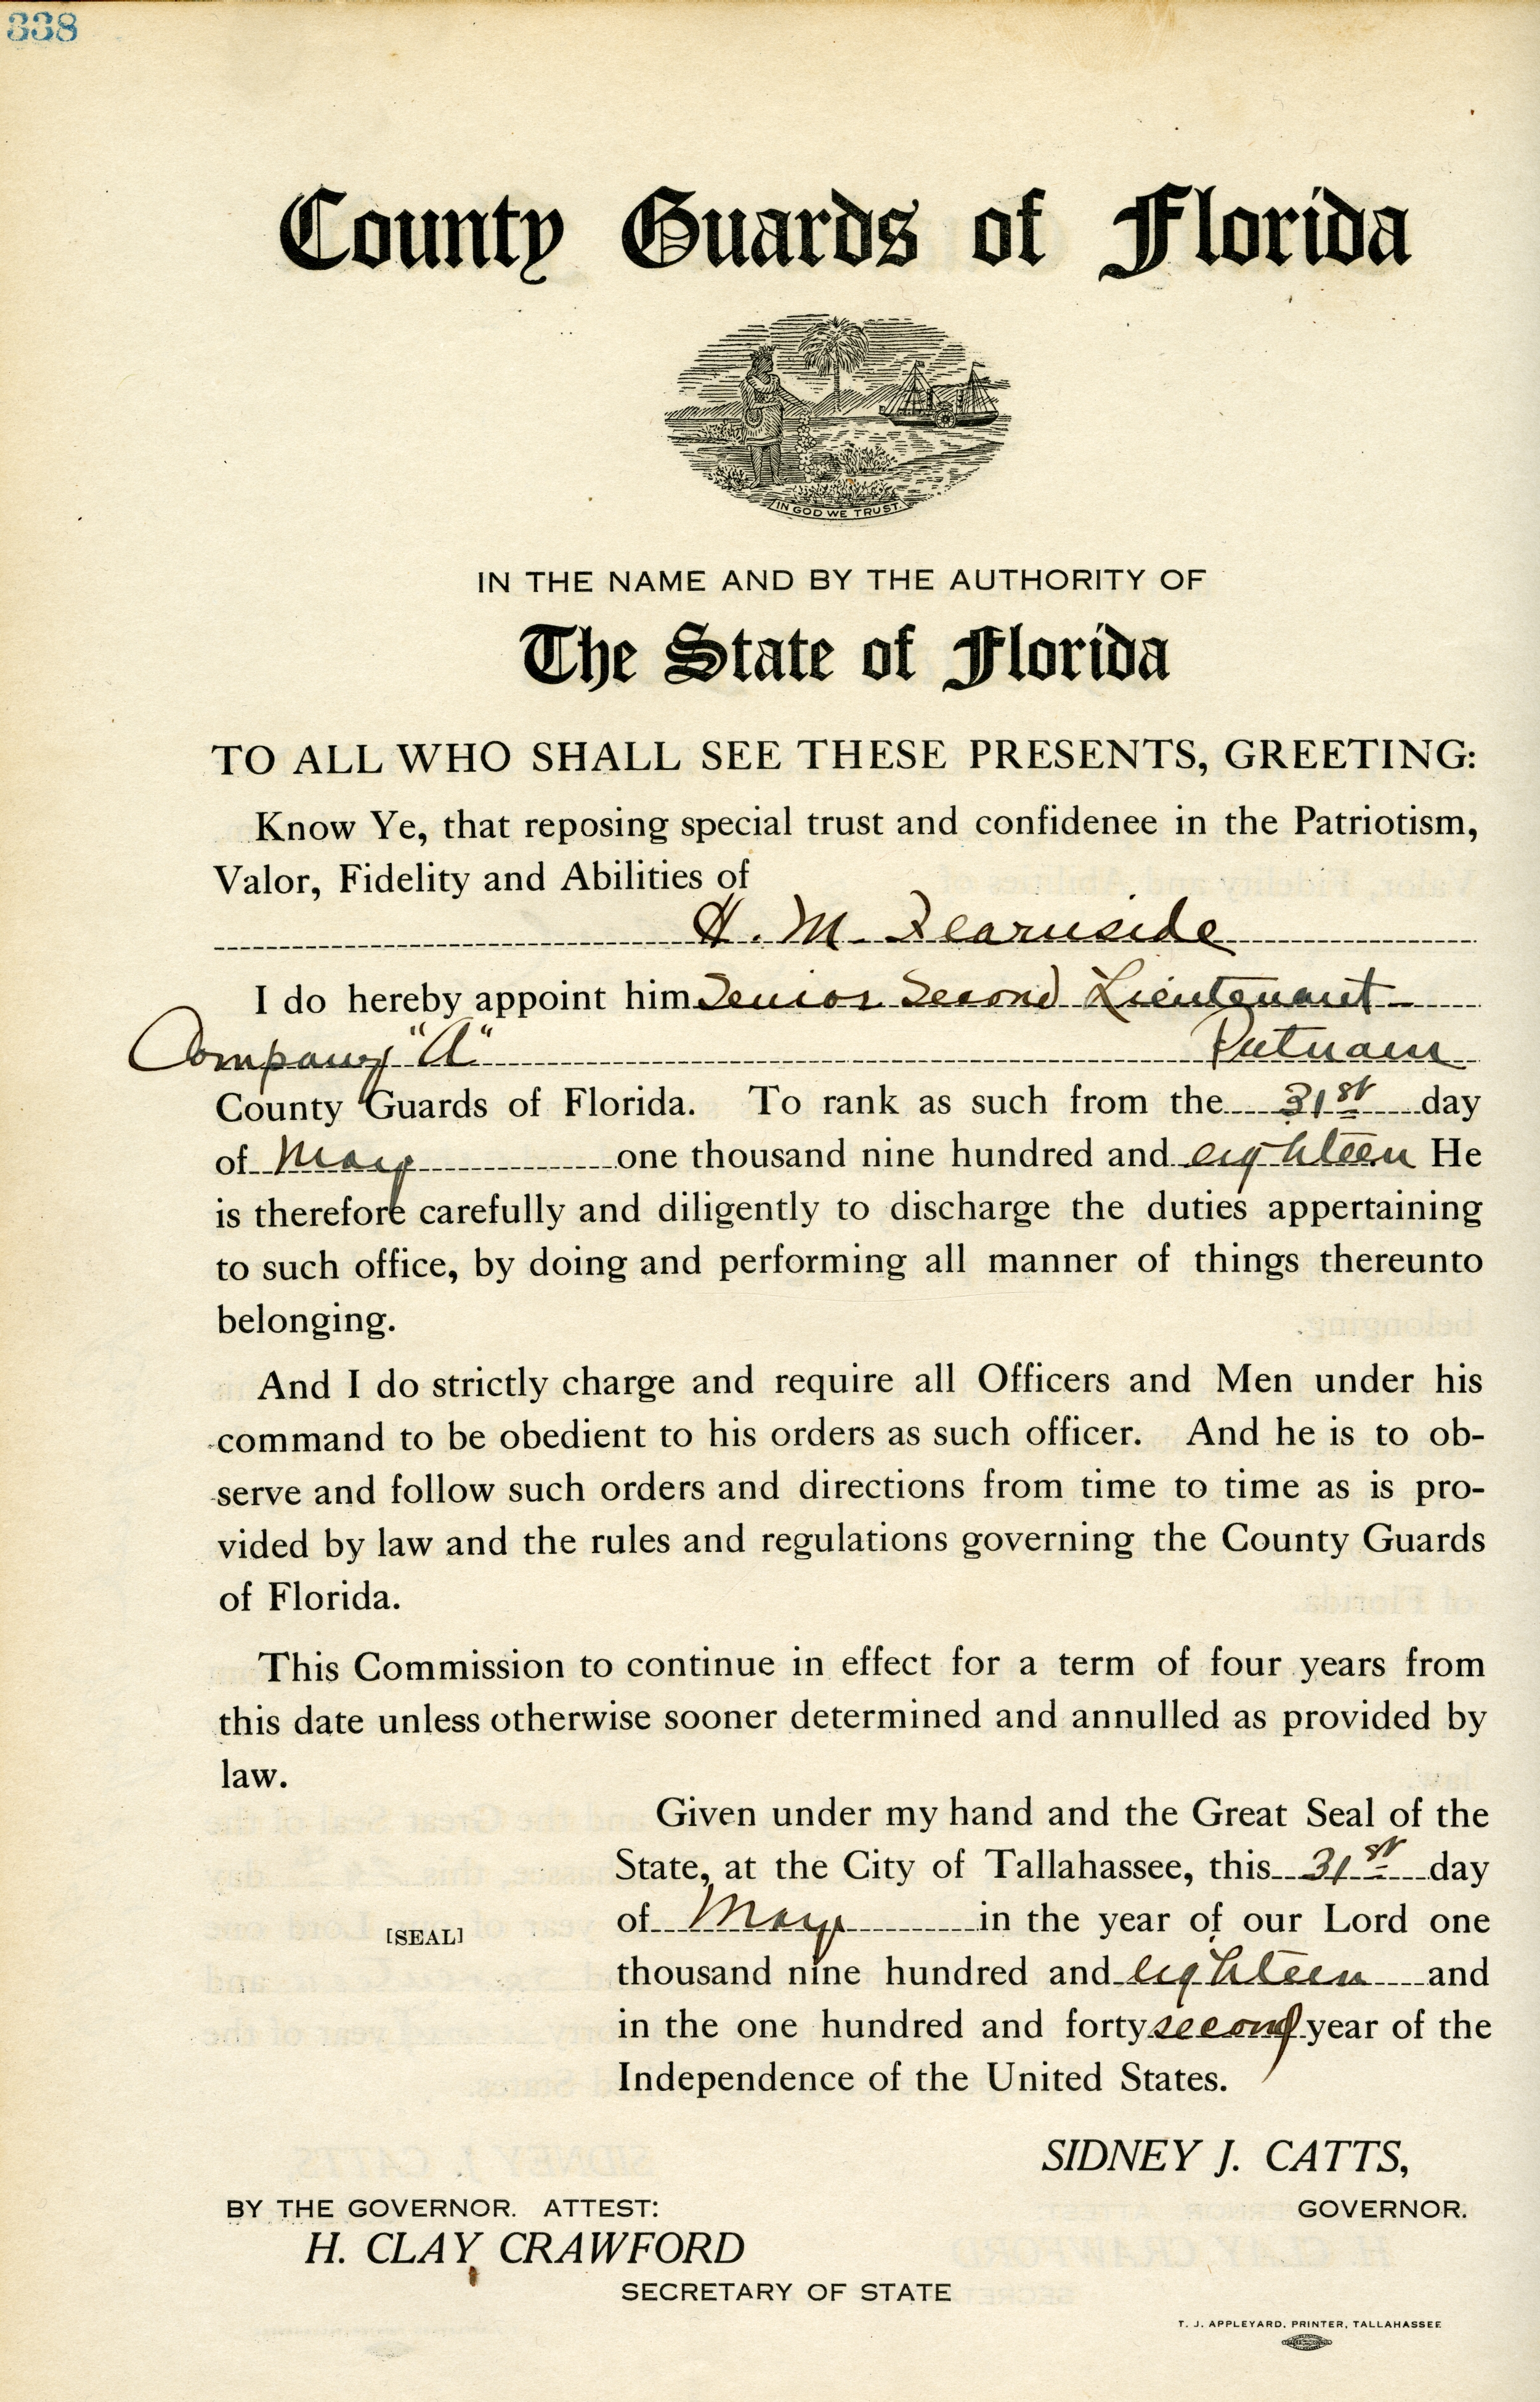 338
County Guards of Florida
IN GOD WE TRUST.
IN THE NAME AND BY THE AUTHORITY OF
The State of Florida
TO ALL WHO SHALL SEE THESE PRESENTS, GREETING:
Know Ye, that reposing special trust and confidenee in the Patriotism,
Valor, Fidelity and Abilities of
H. M. Fearnside
I do hereby appoint him Senior Second Lieutenant
Company "A" Putnam
County Guards of Florida. To rank as such from the 31st day
of May one thousand nine hundred and eighteen He
is therefore carefully and diligently to discharge the duties appertaining
to such office, by doing and performing all manner of things thereunto
belonging.
And I do strictly charge and require all Officers and Men under his
command to be obedient to his orders as such officer. And he is to ob-
serve and follow such orders and directions from time to time as is pro-
vided by law and the rules and regulations governing the County Guards
of Florida.
This Commission to continue in effect for a term of four years from
this date unless otherwise sooner determined and annulled as provided by
law.
Given under my hand and the Great Seal of the
State, at the City of Tallahassee, this 31st day
of May in the year of our Lord one
[SEAL]
thousand nine hundred and eighteen and
in the one hundred and forty second year of the
Independence of the United States.
SIDNEY J. CATTS,
BY THE GOVERNOR. ATTEST: GOVERNOR.
H. CLAY CRAWFORD
SECRETARY OF STATE
T. J. APPLEYARD, PRINTER, TALLAHASSEE